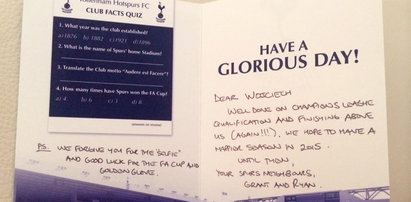 Tottenham Hotspurs FC
CLUB FACTS QUIZ
1. What year was the club established?
a) 1826 b) 1882 c) 1921 d) 1896
2. What is the name of Spurs' home Stadium?
3. Translate the Club motto "Audere est Facere":
4. How many times have Spurs won the FA Cup?
a) 4 b) 6 c) 1 d) 8
PS. WE FORGIVE YOU FOR THE 'SELFIE'
AND GOOD LUCK FOR THE FA CUP AND
GOLDEN GLOVE.
HAVE A
GLORIOUS DAY!
DEAR WOJCIECH
WELL DONE ON CHAMPIONS LEAGUE
QUALIFICATION AND FINISHING ABOVE
US (AGAIN!!!). WE HOPE TO HAVE A
HAPPIER SEASON IN 2015.
UNTIL THEN,
YOUR SPURS NEIGHBOURS,
GRANT AND RYAN.